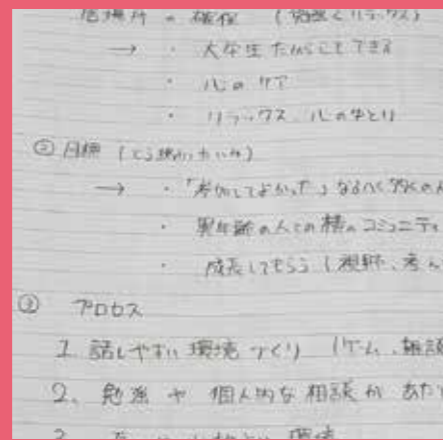 居場所の確保 (勉強とリラックス)
→ ・ 大学生だからこそできる
・ 心のケア
・ リラックス、心のゆとり
② 目標
→ ・「参加してよかった」なるべく多くの人
・ 異年齢の人との横のコミュニティ
・ 成長してもらう (視野、考え
③ プロセス
1. 話しやすい環境づくり (ゲーム、雑談
2、勉強や個人的な相談が